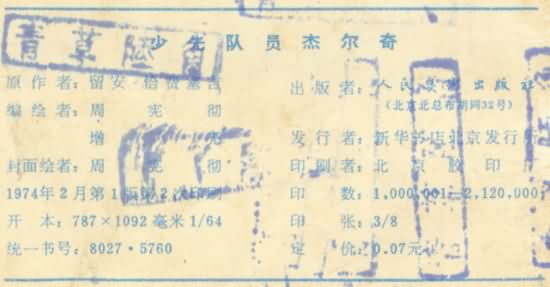 少先队员杰尔奇
原作者：留安 吉
编绘者：周宪彻
增
封面绘者：周宪彻
1974年2月第1版第2次印刷
开本：787×1092毫米1/64
统一书号：8027·5760
出版者：人民美术出版社
（北京北总布胡同32号）
发行者：新华书店北京发行所
印刷者：北京胶印厂
印数：1,000,001—2,120,000
印张：3/8
定价：0.07元
青草